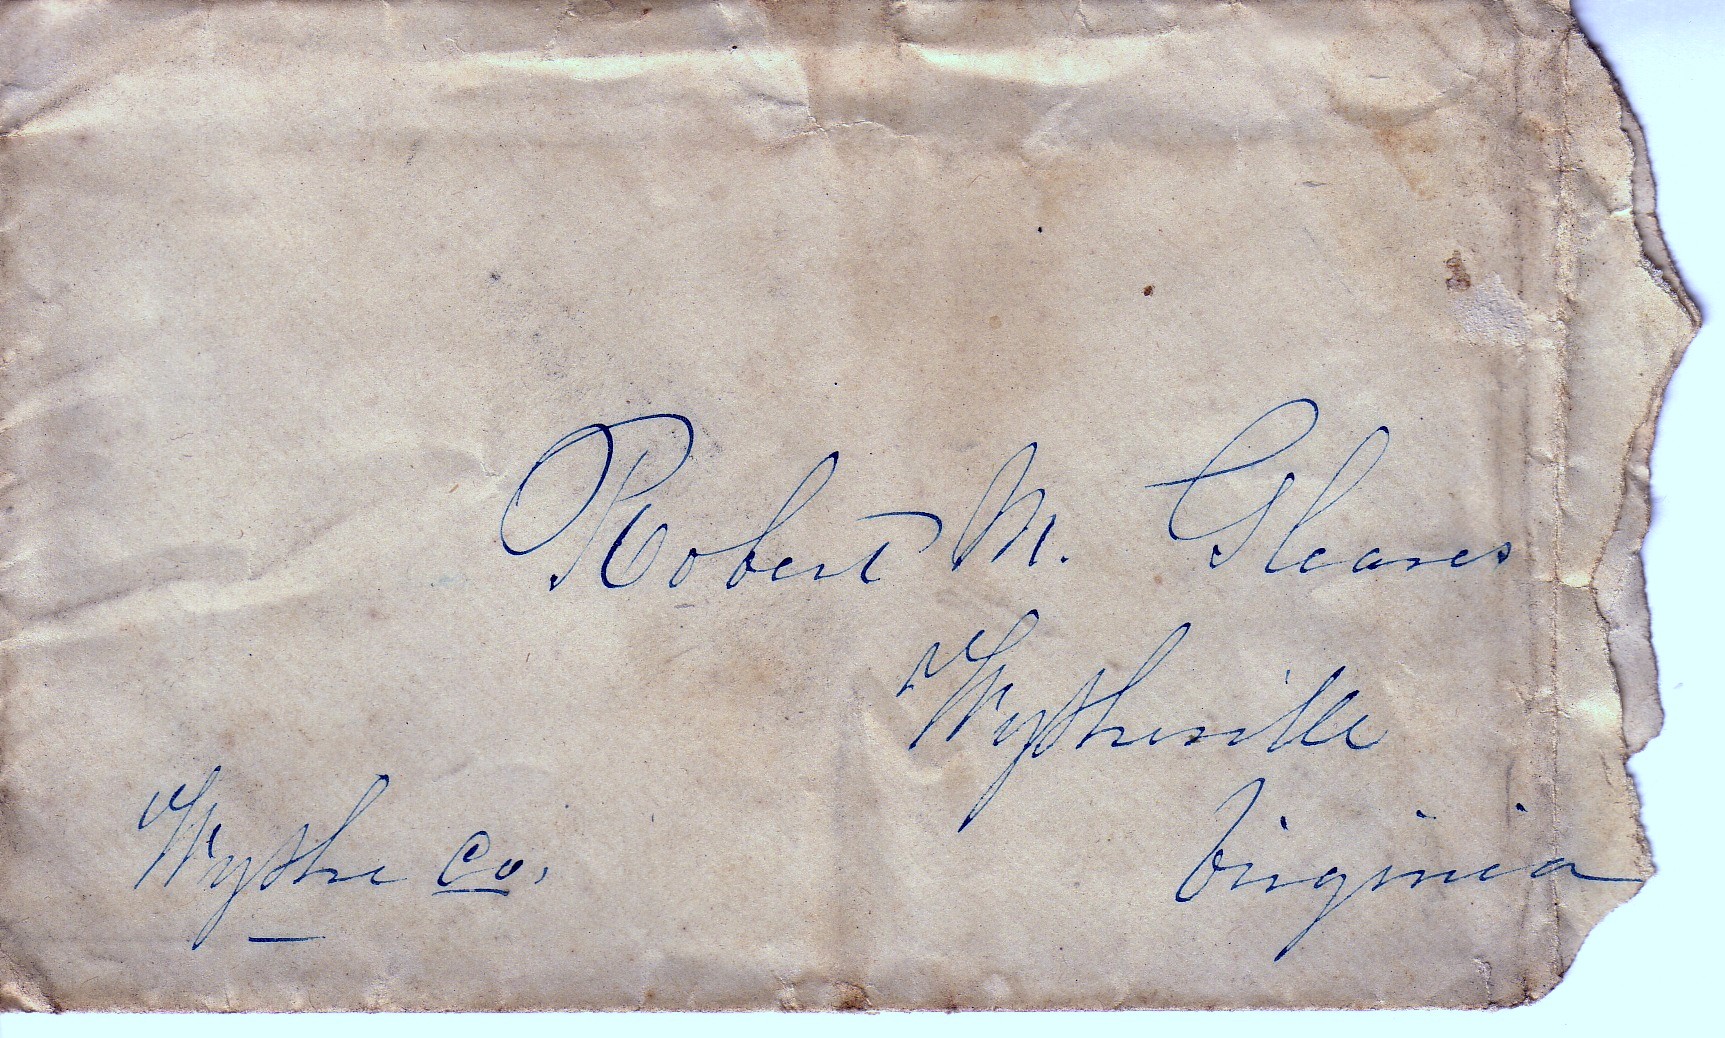 Robert M. Gleaves
Wytheville
Virginia
Wythe Co.